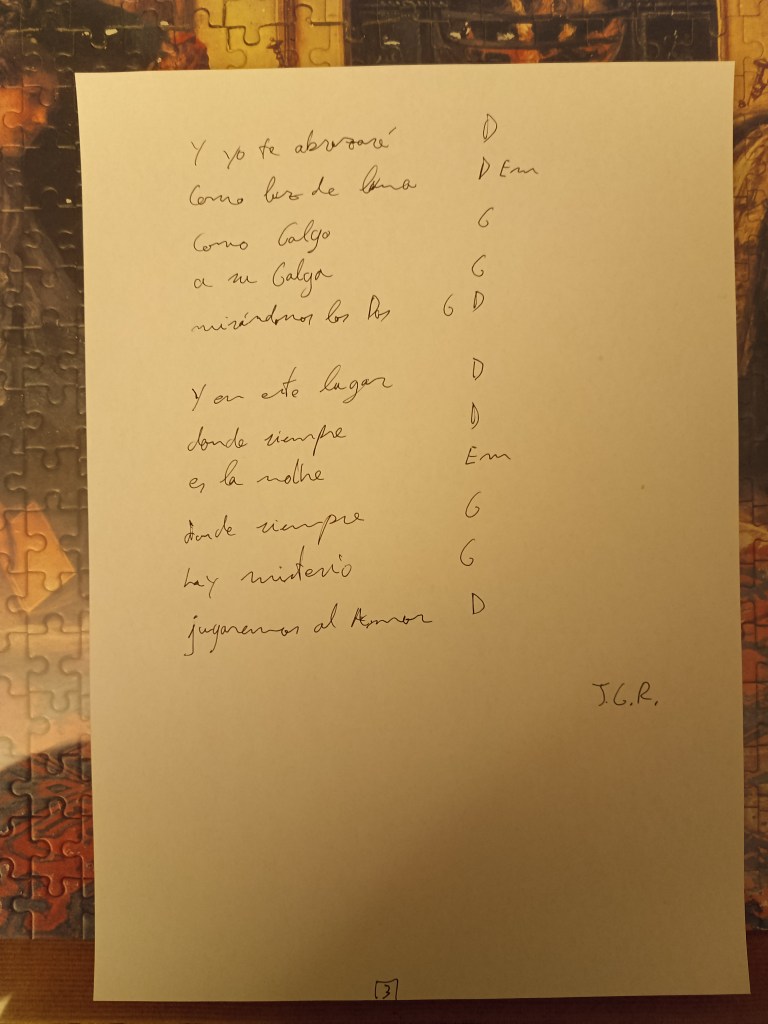 Y yo te abrazaré D
como luz de luna D Em
como Galgo G
a su Galga G
mirándonos los Dos G D
Y en este lugar D
donde siempre D
es la noche Em
donde siempre G
hay misterio G
jugaremos al Amor D
J.G.R.
3